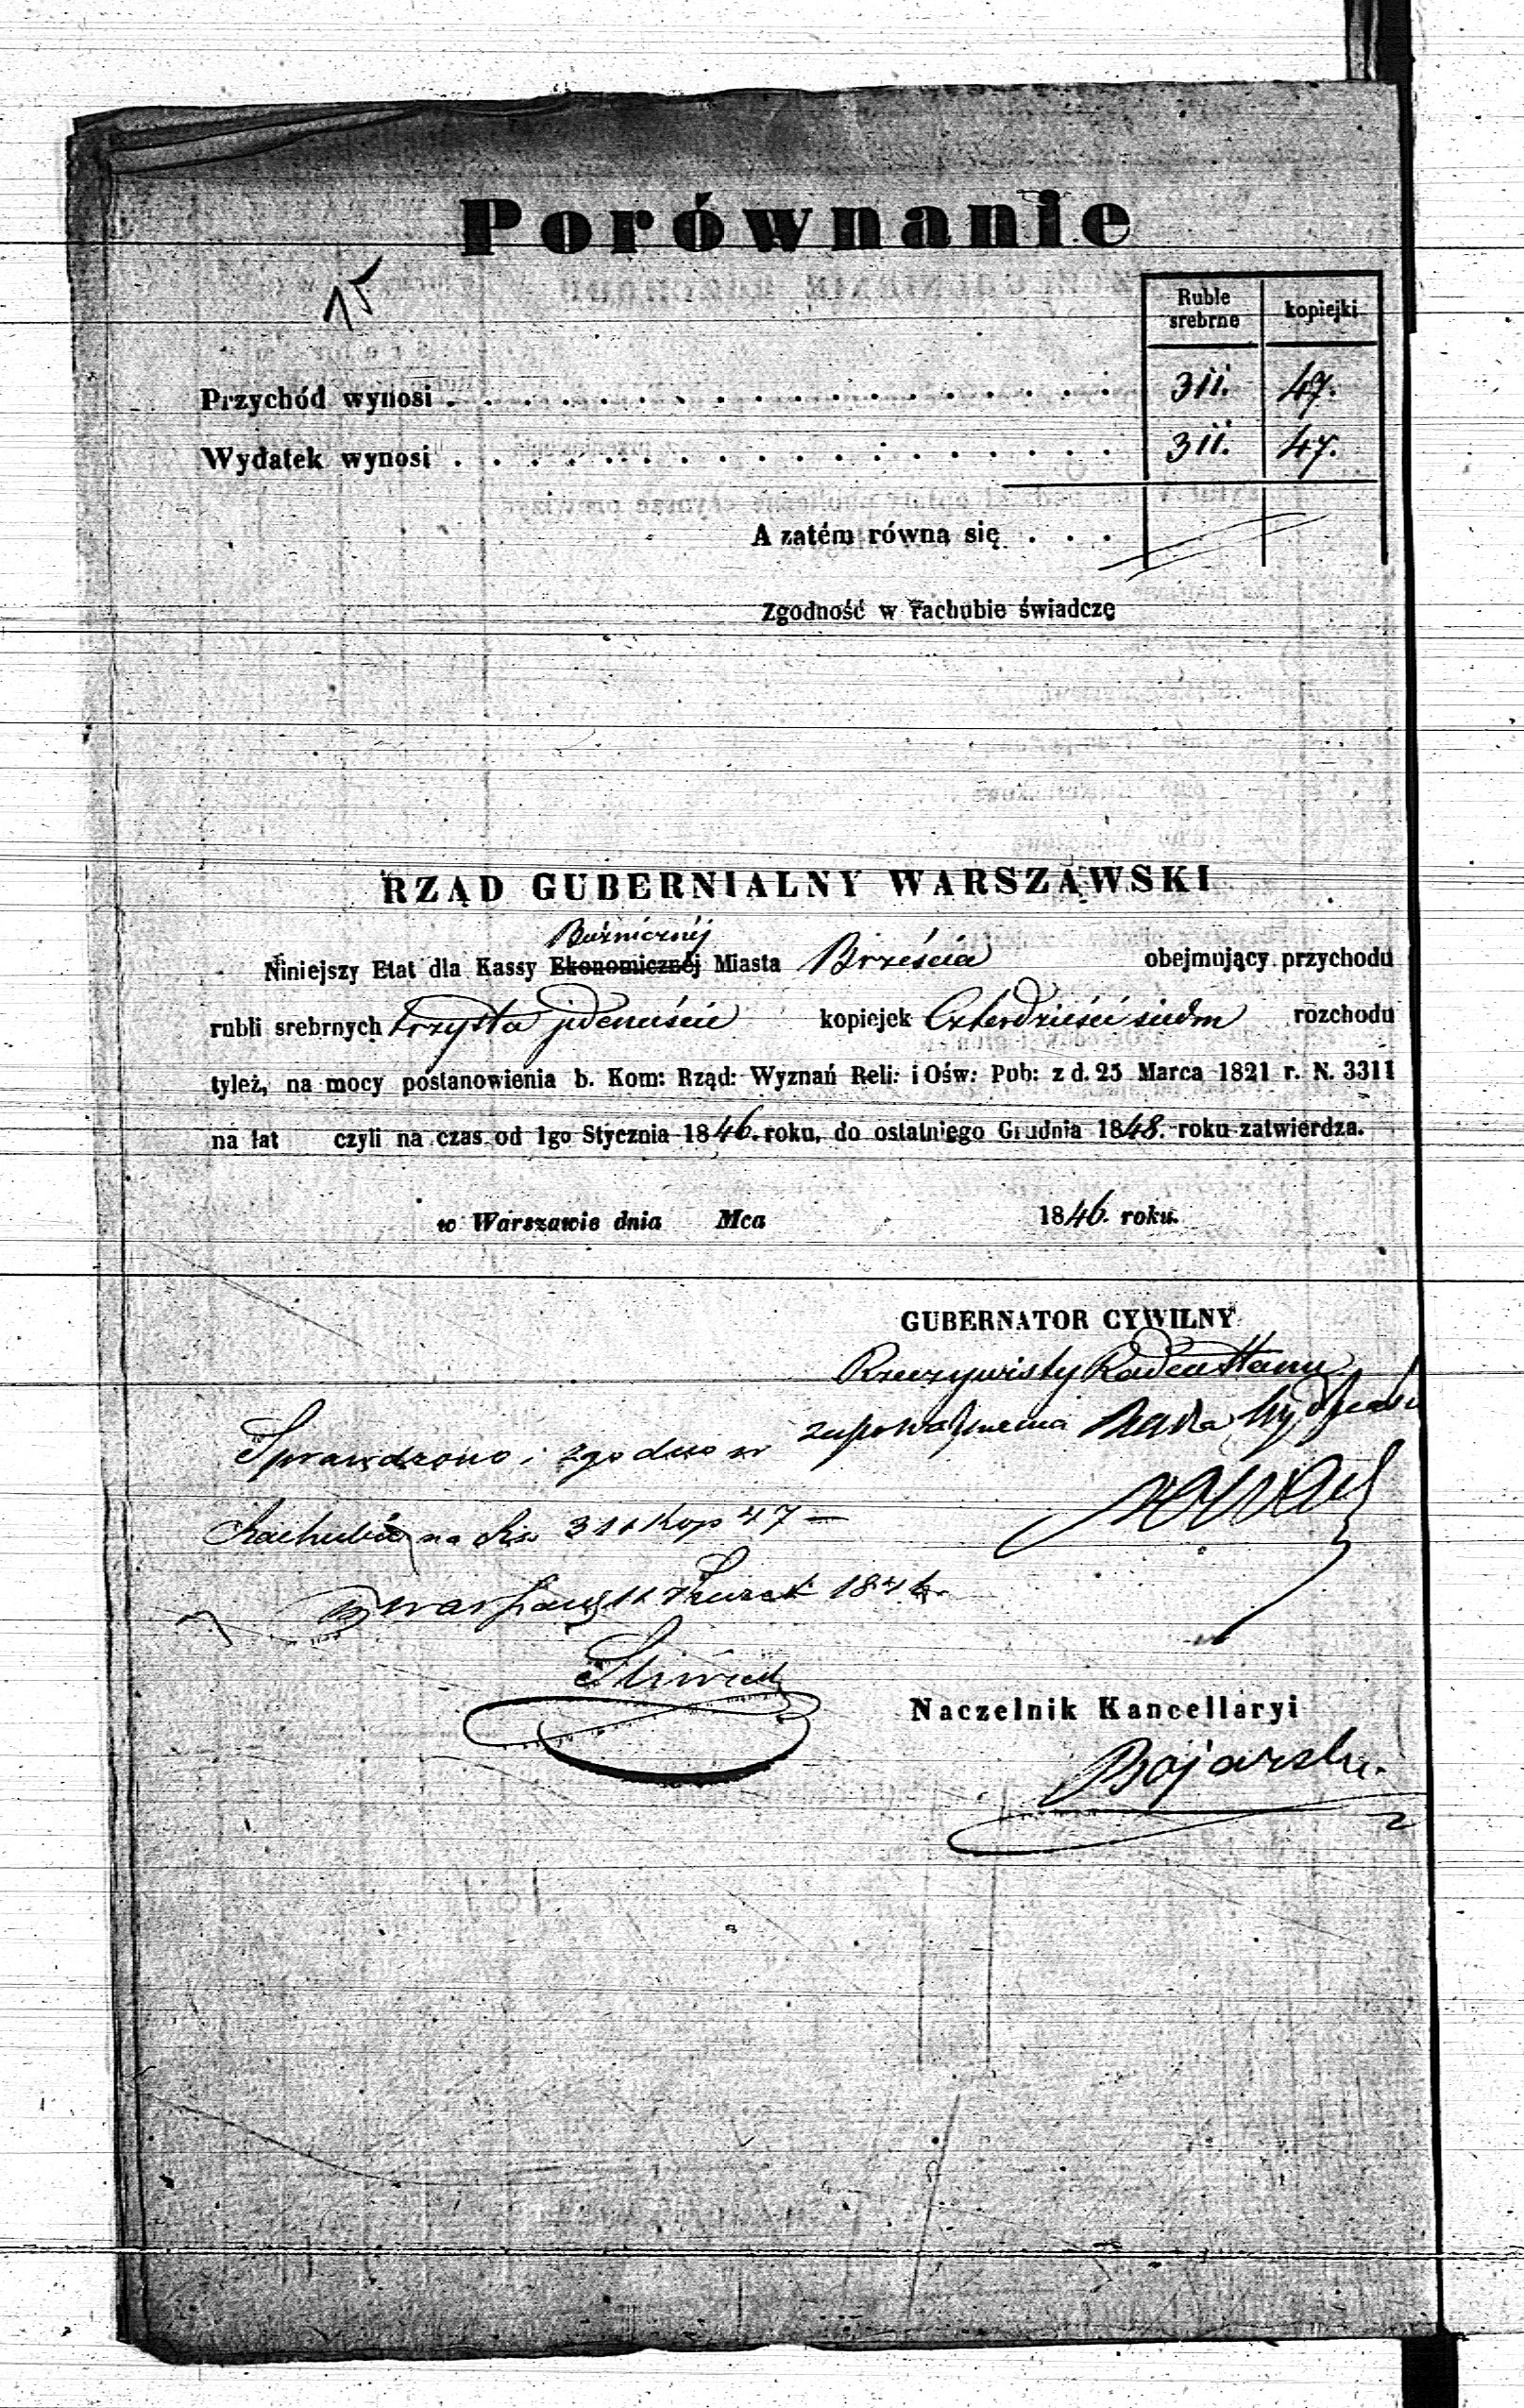 Porównanie
Ruble srebrne kopiejki
Przychód wynosi . . . . . . . . . . . . . . . . . 311. 47.
Wydatek wynosi . . . . . . . . . . . . . . . . . 311. 47.
A zatém równa się . . .
Zgodność w rachubie świadczę
RZĄD GUBERNIALNY WARSZAWSKI
Bóżnicznéj
Niniejszy Etat dla Kassy Ekonomicznéj Miasta Brześcia obejmujący przychodu
rubli srebrnych trzysta jedenaście kopiejek Czterdzieści siedm rozchodu
tyleż, na mocy postanowienia b. Kom: Rząd: Wyznań Reli: i Ośw: Pub: z d. 25 Marca 1821 r. N. 3311
na lat czyli na czas od 1go Stycznia 1846. roku, do ostatniego Grudnia 1848. roku zatwierdza.
w Warszawie dnia Mca 1846. roku.
GUBERNATOR CYWILNY
Rzeczywisty Radca Stanu
z upoważnienia Radca
Sprawdzono i zgodne w
Rachubie na Rsr 311 Kop 47 —
1846
Naczelnik Kancellaryi
Bojarski.